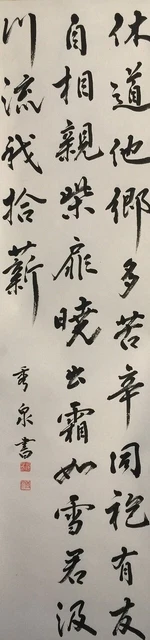 休道他郷多苦辛同袍有友
自相親柴扉暁出霜如雪君汲
川流我拾薪
秀泉書